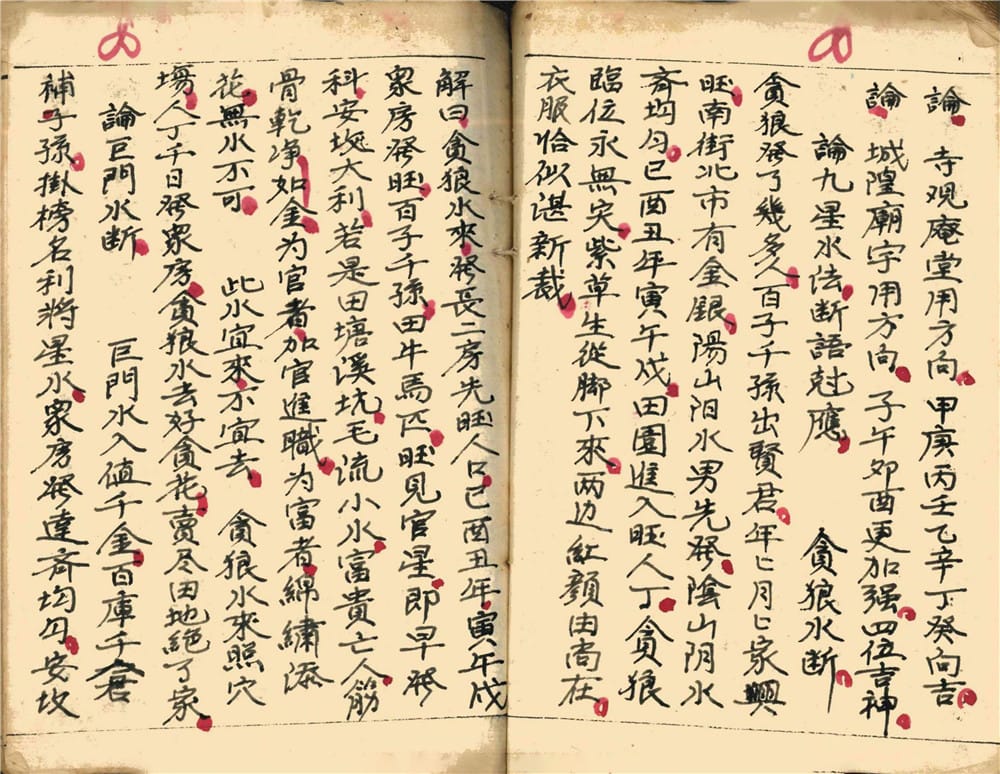 論 寺观庵堂用方向 甲庚丙壬乙辛丁癸向吉
論 城隍廟宇用方向 子午卯酉更加强四位吉神
論九星水法断語尅應 貪狼水断
貪狼發了幾多人百子千孫出賢君年匕月匕家興
旺南街北市有金銀陽山阳水男先發陰山阴水
斉均匀巳酉丑年寅午戌田園進入旺人丁貪狼
臨位永無灾紫草生從脚下來两边紅顔由尚在
衣服恰似湛新裁
解曰貪狼水來發長二房先旺人口巳酉丑年寅午戌
眾房發旺百子千孫田牛馬匹旺見官星即早發
科安坟大利若是田塘溪坑毛流小水富貴亡人筋
骨乾净如金为官者加官進職为富者綿繡添
花無水不可 此水宜來不宜去 貪狼水來照穴
塲人丁千日發眾房貪狼水去好貪花賣尽田地絕了家
論巨門水断 巨門水入值千金百庫千倉
補子孫掛榜名利將星水眾房發達斉均匀安坟